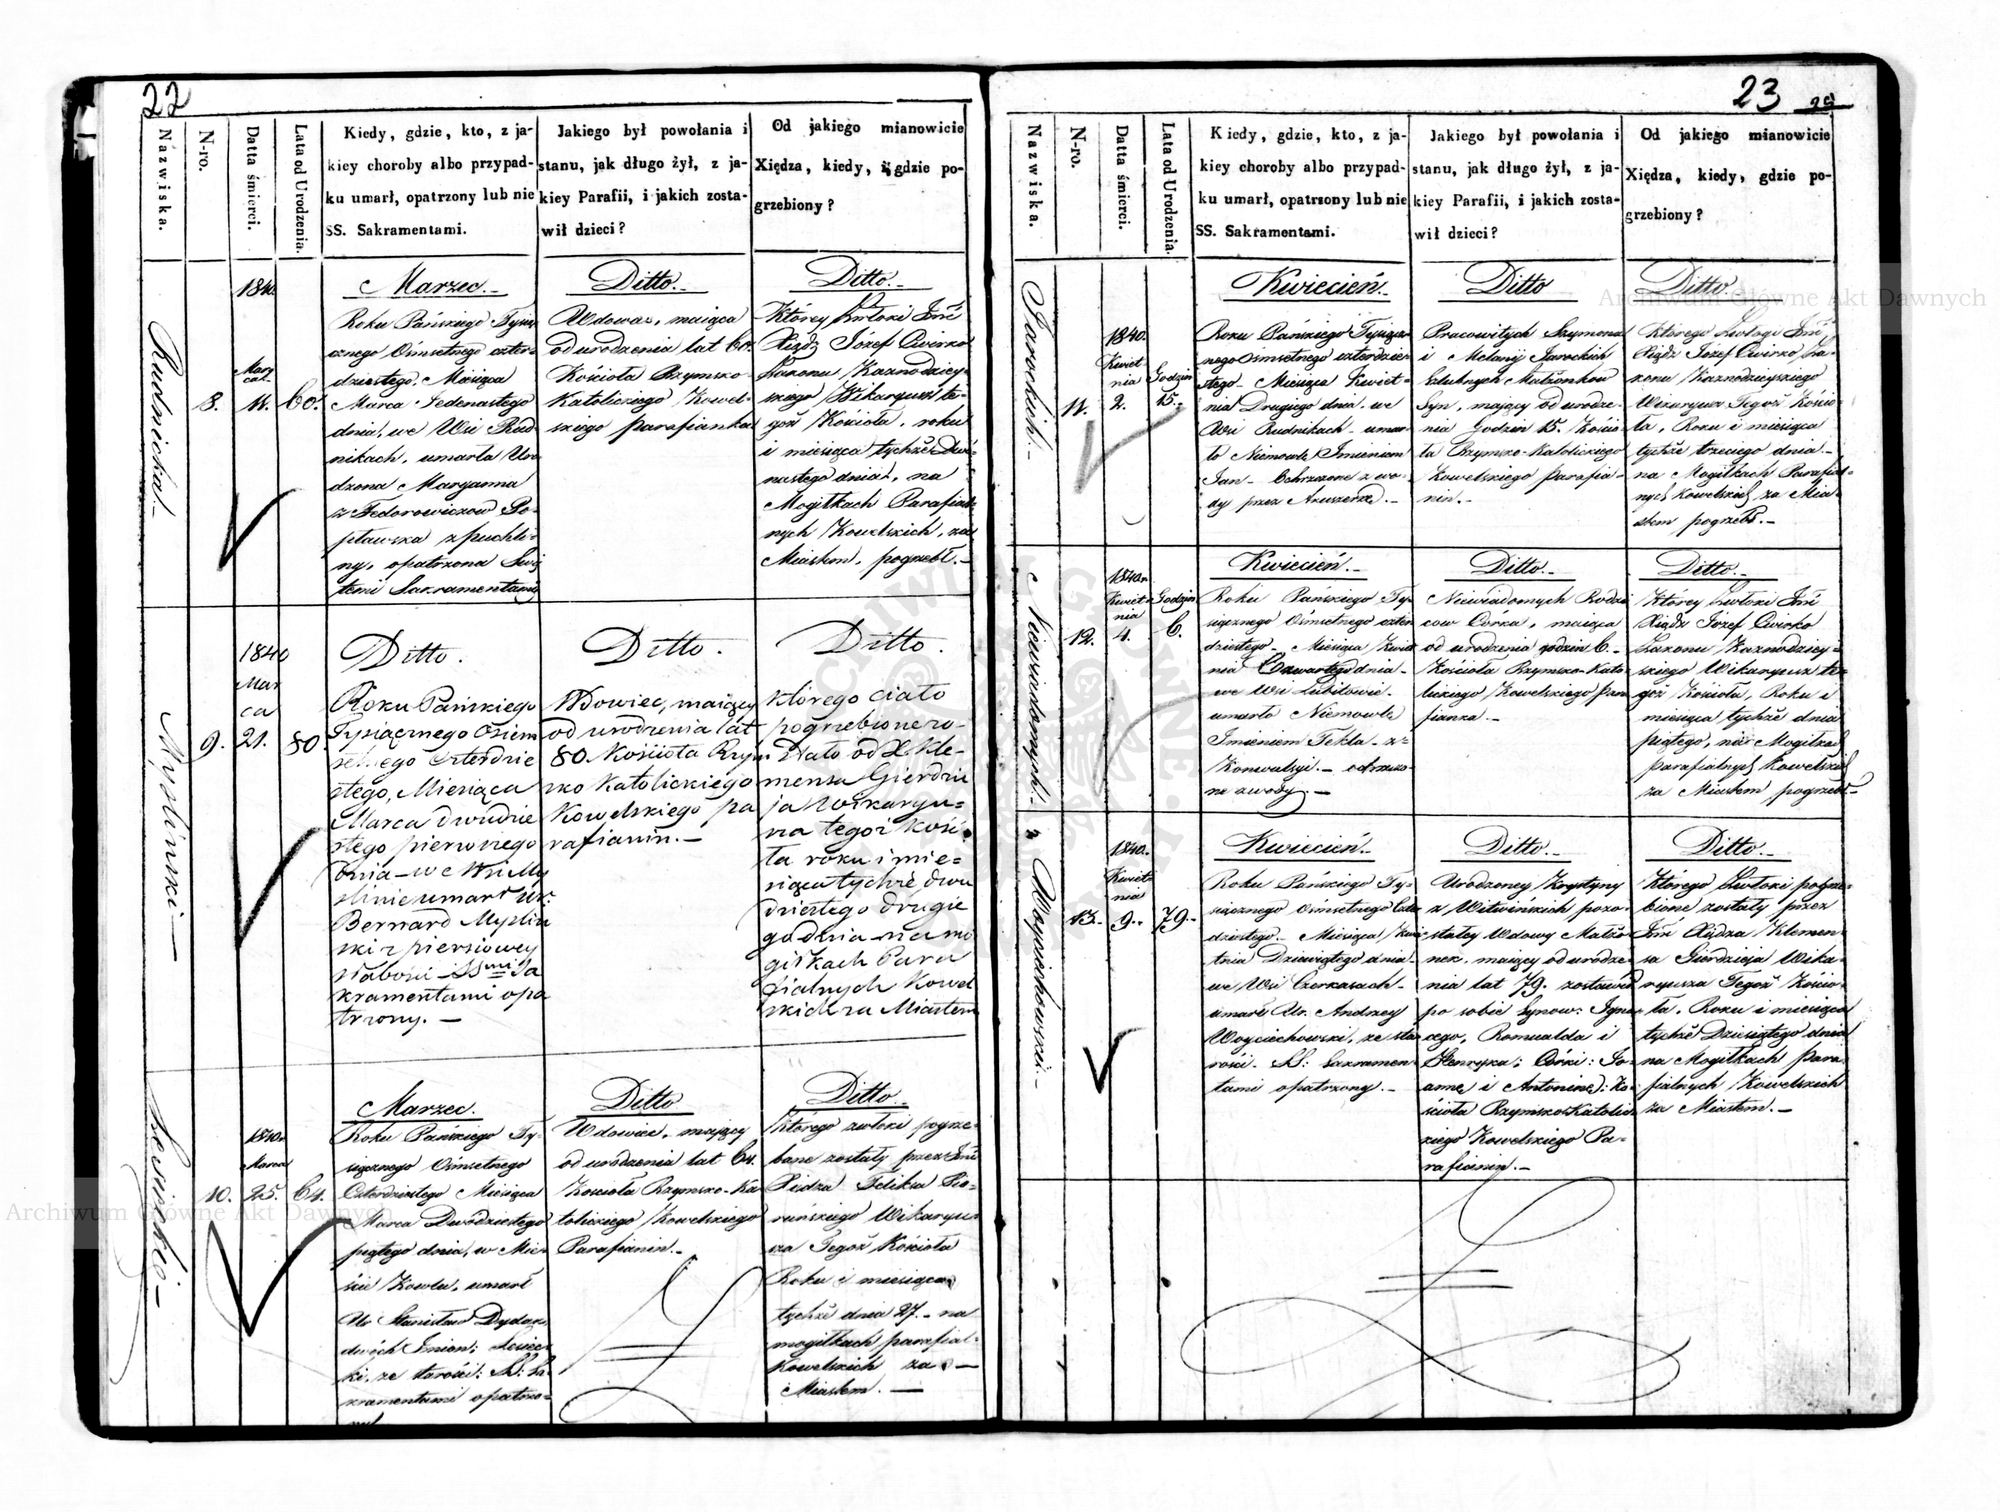 22
Nazwiska.
N-ro.
Datta śmierci.
Lata od Urodzenia.
Kiedy, gdzie, kto, z ja-
kiey choroby albo przypad-
ku umarł, opatrzony lub nie
SS. Sakramentami.
Jakiego był powołania i
stanu, jak długo żył, z ja-
kiey Parafii, i jakich zosta-
wił dzieci?
Od jakiego mianowicie
Xiędza, kiedy, i gdzie po-
grzebiony?
1840.
8.
11.
60.
Marzec.
Roku Pańskiego Tysią-
cznego Ośmsetnego czter-
dziestego, Miesiąca
Marca Jedenastego
dnia, we Wsi Rud-
nikach, umarła Uro
dzona Maryanna
z Fedorowiczow Po-
pławska z puchli-
ny, opatrzona Świę
temi Sakramentami
Ditto.
Wdowa, maiąca
od urodzenia lat 60.
Kościoła Rzymsko-
Katolickiego Kowel-
skiego parafianka
Ditto.
Którey zwłoki Jmć
Xiądz Józef Cwirko
Zakonu Kaznodziey-
skiego Wikaryusz te-
goż Kościoła, roku
i miesiąca tychże Dwu-
nastego dnia, na
Mogiłkach Parafial-
nych Kowelskich, za
Miastem, pogrzebł.
Myslinski
1840
Mar
ca
9.
21.
80.
Ditto.
Roku Pańskiego
Tysiącznego Ośiem
setnego Czterdzie
stego, Miesiąca
Marca dwudzie
stego pierwszego
dnia we Wsi My
slinie umarł Ur:
Bernard Myslin
ski z piersiowey
słabości SSmi Sa
kramentami opa
trzony.
Ditto.
Wdowiec, maiący
od urodzenia lat
80. Kościoła Rzym
sko Katolickiego
Kowelskiego pa
rafianin.
Ditto.
którego ciało
pogrzebione zo-
stało od X. Kle-
mensa Gierdzie
ja Wikaryu-
sza tegoż Kości
ła roku i mie-
siąca tychże dwu
dziestego drugie
go dnia na mo
giłkach Para
fialnych Kowel
skich za Miastem
1840.
Marca
10.
25.
64.
Marzec.
Roku Pańskiego Ty-
siącznego Ośmsetnego
Czterdziestego Miesiąca
Marca Dwódziestego
piątego dnia, w Mie-
ście Kowla, umarł
Ur Stanisław
dwóch Imion:
ki, ze starości: SS: Sa-
kramentami opatrzo-
ny
Ditto.
Wdowiec, mający
od urodzenia lat 64.
Kościoła Rzymsko-Ka
tolickiego Kowelskiego
Parafianin.
Ditto.
Którego zwłoki pogrze-
bane zostały przez Jmć
Xiędza Felixa
Wikaryu-
sza Tegoż Kościoła
Roku i miesiąca
tychże dnia 27. na
mogiłkach parafial-
Kowelskich za
Miastem.
23
Nazwiska.
N-ro.
Datta śmierci.
Lata od Urodzenia.
Kiedy, gdzie, kto, z ja-
kiey choroby albo przypad-
ku umarł, opatrzony lub nie
SS. Sakramentami.
Jakiego był powołania i
stanu, jak długo żył, z ja-
kiey Parafii, i jakich zosta-
wił dzieci?
Od jakiego mianowicie
Xiędza, kiedy, gdzie po-
grzebiony?
Jarockich.
1840.
Kwiet-
nia
Godzin
11.
2.
15.
Kwiecień.
Roku Pańskiego Tysiącz-
nego Ośmsetnego czterdzie-
stego Miesiąca Kwiet-
nia Drugiego dnia, we
Wsi Rudnikach umar-
ło Niemowle Imieniem
Jan Ochrzczone z wo-
dy przez Akuszerkę.
Ditto
Pracowitych Szymona
i Melanij Jarockich
Szlubnych Małżonkow
Syn, mający od urodze-
nia Godzin 15. Kościo-
ła Rzymsko-Katolickiego
Kowelskiego parafia-
nin.
Ditto.
Którego Zwłogi Jmć
Xiądz Józef Cwirko Za-
konu Kaznodzieyskiego
Wikaryusz Tegoż Kościo-
ła, Roku i miesiąca
tychże trzeciego dnia
na Mogiłkach Parafial-
nych Kowelskich za Mia-
stem pogrzebł.
Niewiadomych.
1840.
Kwiet-
nia
Godzin
12.
4.
6.
Kwiecień.
Roku Pańskiego Ty-
siącznego Ośmsetnego czter
dziestego Miesiąca Kwiet
nia Czwartego dnia
we Wsi Lubitowie
umarło Niemowle
Imieniem Tekla z
Konwulsyi. ochrzczo-
ne z wody.
Ditto.
Niewiadomych Rodzi
cow Córka, maiąca
od urodzenia godzin 6.
Kościoła Rzymsko-Kato
lickiego Kowelskiego para
fianka.
Ditto.
Którey Zwłoki Jmć
Xiądz Józef Cwirko
Zakonu Kaznodziey-
skiego Wikaryusz te-
goż Kościoła, Roku i
miesiąca tychże dnia
piątego, na Mogiłkach
parafialnych Kowelskich
za Miastem pogrzebł.
Woyciechowski.
1840.
Kwiet-
nia
13.
9.
79.
Kwiecień.
Roku Pańskiego Ty-
siącznego Ośmsetnego Czter
dziestego Miesiąca Kwie
tnia Dziewiątego dnia
we Wsi Czerkasach
umarł Ur. Andrzey
Woyciechowski, ze sta-
rości. SS: Sakramen-
tami opatrzony.
Ditto.
Urodzoney Krystyny
z Witwińskich pozo-
stałey Wdowy Małżo-
nek, maiący od urodze-
nia lat 79. zostawił
po sobie Synow: Igna-
cego, Romualda i
Henryka: Córki: Jo-
annę i Antoninę: Ko-
ścioła Rzymsko Katolic
kiego Kowelskiego Pa-
rafianin.
Ditto.
Którego Zwłoki pogrze-
bione zostały przez
Jmć Xiędza Klemen-
sa Gierdzieja Wika-
ryusza Tegoż Kościo-
ła, Roku i miesiąca
tychże Dziesiątego dnia
na Mogiłkach para-
fialnych Kowelskich
za Miastem.
Archiwum Główne Akt Dawnych
Archiwum Główne Akt Dawnych